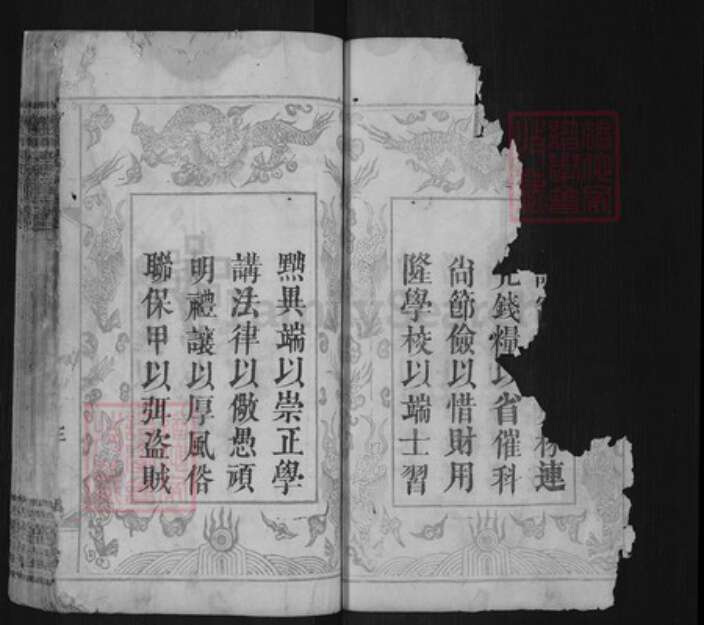 連
錢糧以省催科
尙節儉以惜財用
隆學校以端士習
黜異端以崇正學
講法律以儆愚頑
明禮讓以厚風俗
聯保甲以弭盜賊